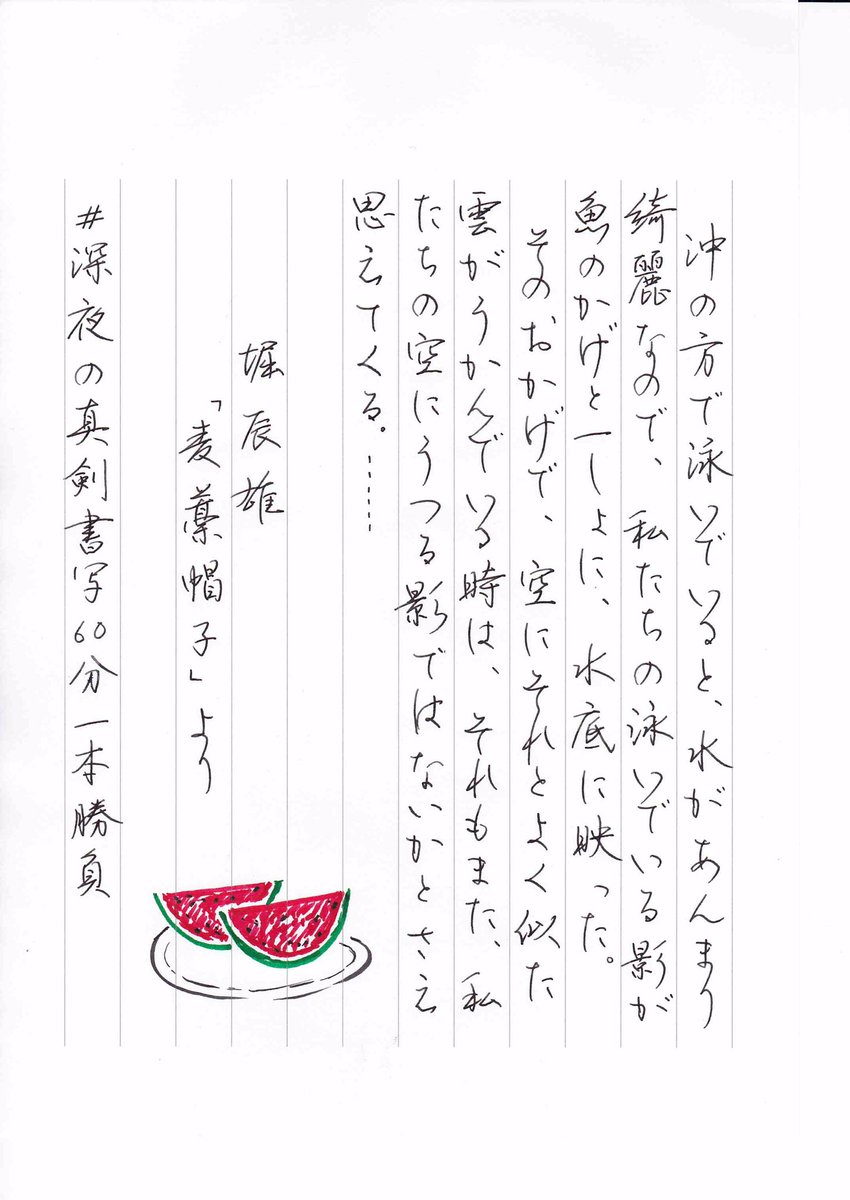 沖の方で泳いでいると、水があんまり
綺麗なので、私たちの泳いでいる影が
魚のかげと一しょに、水底に映った。
そのおかげで、空にそれとよく似た
雲がうかんでいる時は、それもまた、私
たちの空にうつる影ではないかとさえ
思えてくる。……
堀辰雄
「麦藁帽子」より
#深夜の真剣書写60分一本勝負